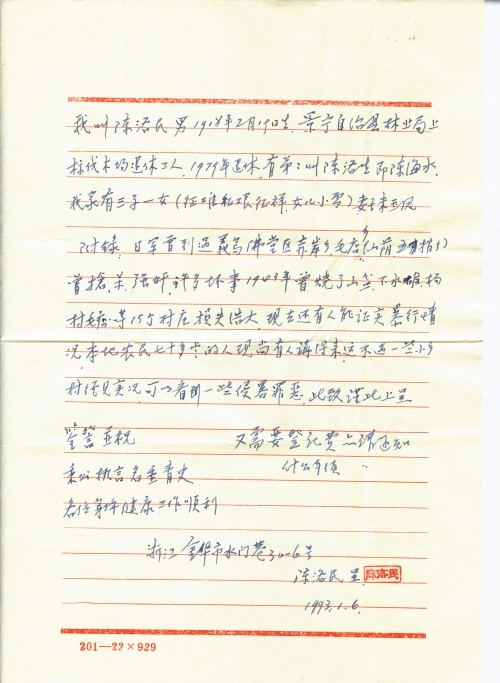 我叫陈洛民 男 1918年2月19日生. 景宁自治县林业局上
标伐木场退休工人, 1979年退休, 有弟: 叫陈洛生即陈海水,
我家有三子一女(征 征祥, 女儿小雪) 妻子朱玉凤
附録: 日军曾到过義乌佛堂区赤岸乡毛店
曾搶. 杀. 强奸, 許多坏事 1943年曾烧了山盆. 下水碓, 杨
村 等15个村庄, 损失浩大, 现在还有人能证实暴行情
况, 本地农民七十多岁的人现尚有人講得来, 这不过一些小乡
村经见实况, 可以看到一些侵畧罪恶. 此致謹此上呈
鉴詧 并祝 又需要登记费点請通知
秉公执言名垂青史 什么手续
各位身体健康工作顺利
浙江金华市水门巷30-6号
陈洛民 呈. 陈洛民
1993.1.6.
201—22×929